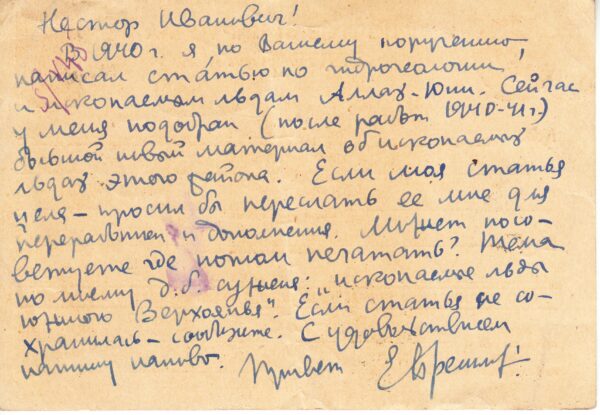 Нестор Иванович!
В 1940 г. я, по Вашему поручению,
написал статью по гидрогеологии
и ископаемым льдам Аллах-Юня. Сейчас
у меня подобран (после работ 1940-41 г.)
большой новый материал об ископаемых
льдах этого района. Если моя статья
цела – просил бы переслать ее мне для
переработки и дополнения. Может посо-
ветуете где потом печатать? Тема
по моему д.б. сужена: "ископаемые льды
южного Верхоянья". Если статья не со-
хранилась – сообщите. С удовольствием
напишу наново. Привет